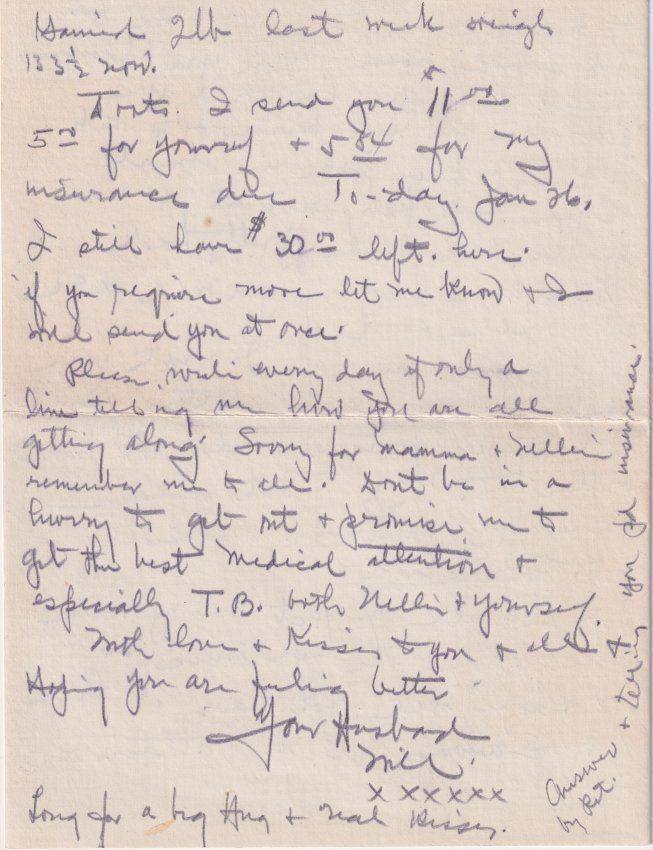 Gained 2lb last week weigh
133½ now.
Toots. I send you $11.00
5.00 for yourself + 5 84 for my
insurance due To-day Jan 26.
I still have $30.00 left. here.
if you require more let me know + I
will send you at once.
Please write every day if only a
line telling me how you are all
getting along. Sorry for Mamma + Nellie
remember me to all. Dont be in a
hurry to get out + promise me to
get the best medical attention +
especially T.B. both Nellie + yourself.
With love + Kisses to you + all
Hoping you are feeling better
Your Husband
Will.
x x x x x x
Long for a big Hug + real Kisses.
Answer
by Ret.
+ telling you pd insurance.